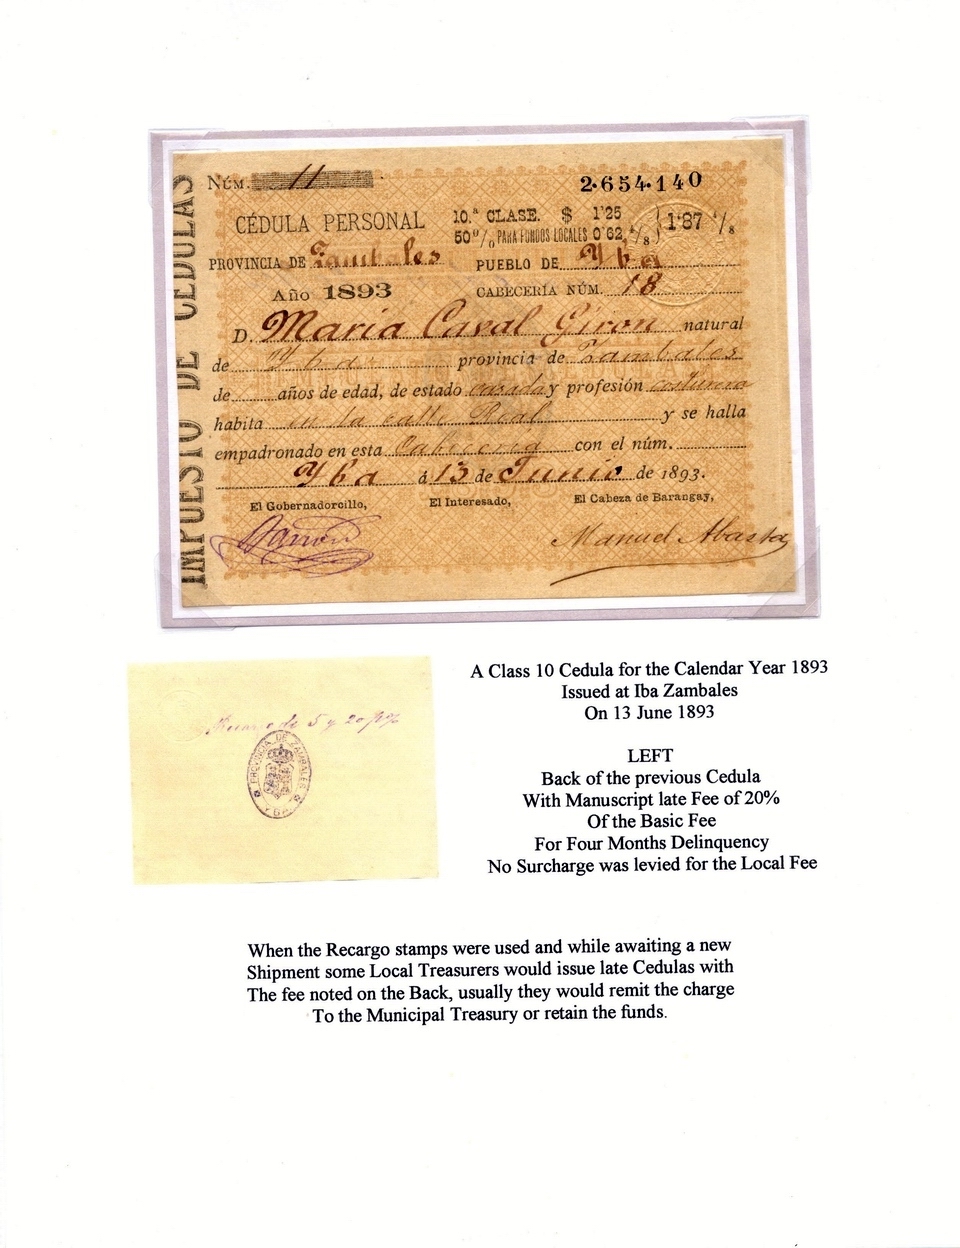 IMPUESTO DE CEDULAS
NÚM. 11
2·654·140
CÉDULA PERSONAL
10.ª CLASE. $ 1'25
50 % PARA FONDOS LOCALES 0'62 4/8 } 1'87 4/8
PROVINCIA DE Zambales PUEBLO DE Yba
Año 1893 CABECERÍA NÚM. 18
D. Maria Caval Giron natural
de Yba provincia de Zambales
de años de edad, de estado casada y profesión costurera
habita en la calle Real y se halla
empadronado en esta Cabeceria con el núm.
Yba á 13 de Junio de 1893.
El Gobernadorcillo, El Interesado, El Cabeza de Barangay,
Manuel Abasta
A Class 10 Cedula for the Calendar Year 1893
Issued at Iba Zambales
On 13 June 1893
de 5 y 20 p%
PROVINCIA DE ZAMBALES
YBA
LEFT
Back of the previous Cedula
With Manuscript late Fee of 20%
Of the Basic Fee
For Four Months Delinquency
No Surcharge was levied for the Local Fee
When the Recargo stamps were used and while awaiting a new
Shipment some Local Treasurers would issue late Cedulas with
The fee noted on the Back, usually they would remit the charge
To the Municipal Treasury or retain the funds.